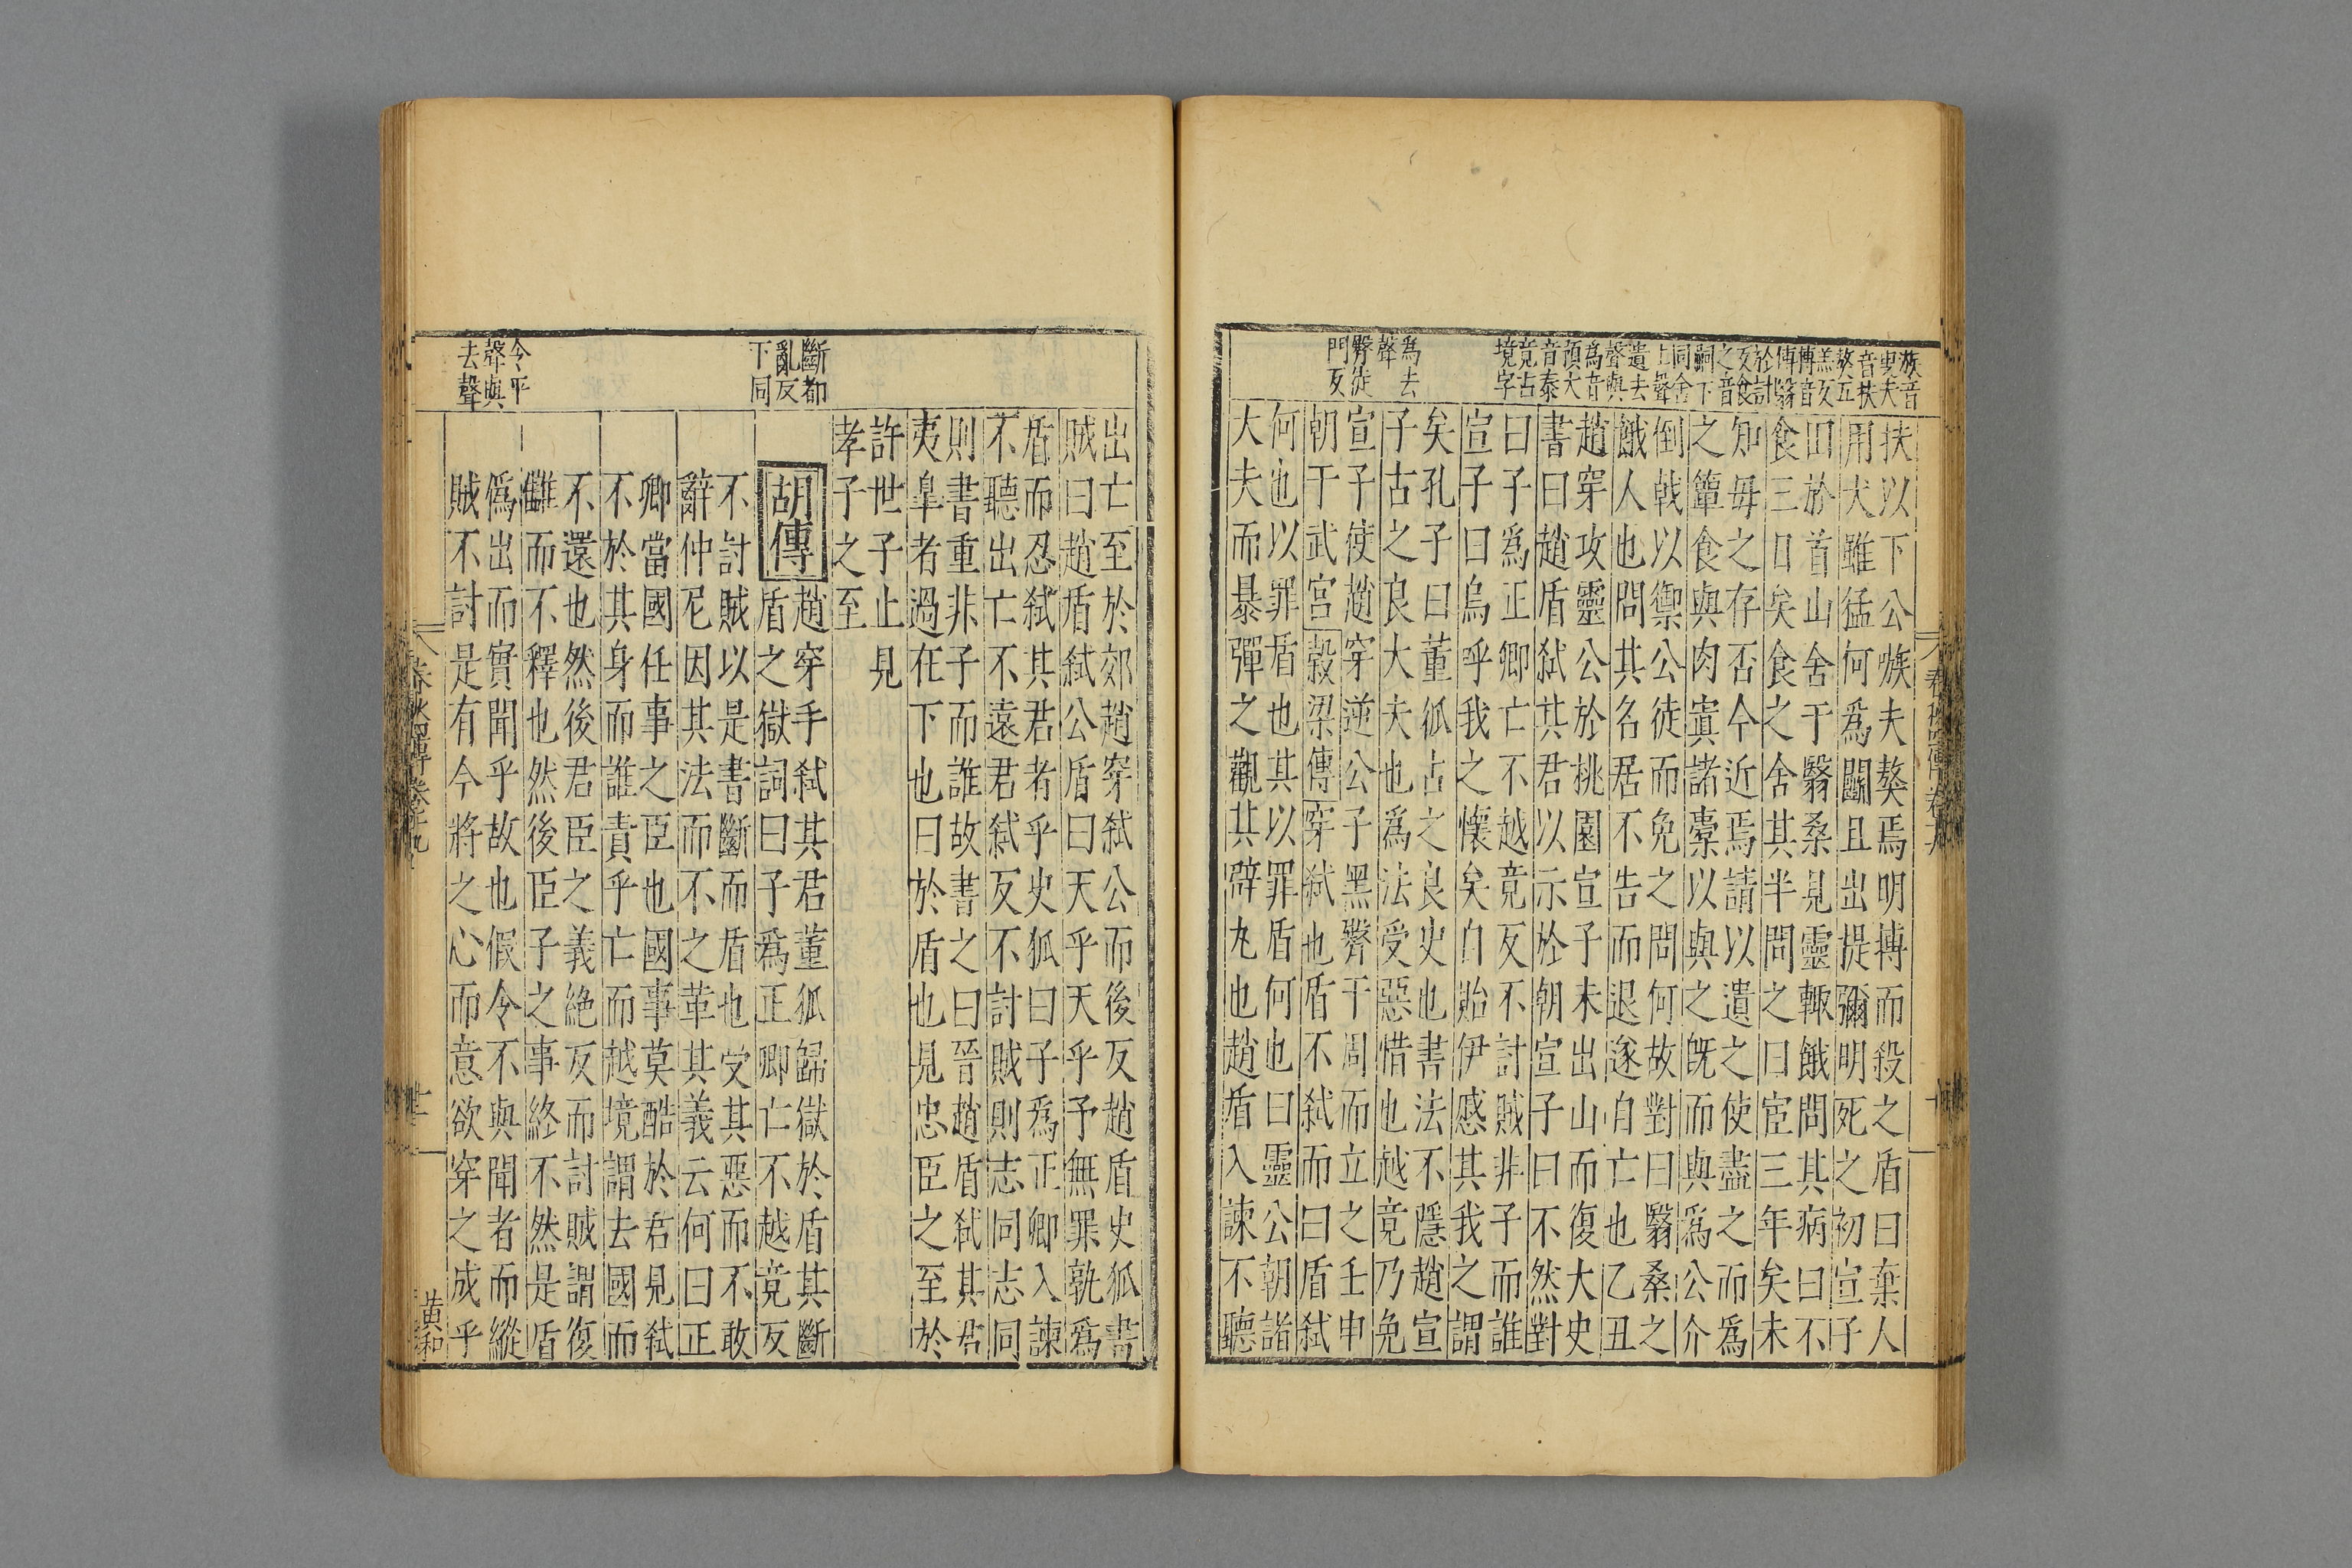 嗾音
叟夫
音扶
獒五
羔反
搏音
傳翳
於計
反食
之音
嗣下
同舍
上聲
遺去
聲與
爲音
預大
音泰
竟古
境字
爲去
聲
臀徒
門反
扶以下公嗾夫獒焉明搏而殺之盾曰棄人
用犬雖猛何爲鬭且出提彌明死之初宣子
田於首山舍于翳桑見靈輒餓問其病曰不
食三日矣食之舍其半問之曰宦三年矣未
知毋之存否今近焉請以遺之使盡之而爲
之簞食與肉寘諸橐以與之旣而與爲公介
倒戟以禦公徒而免之問何故對曰翳桑之
餓人也問其名居不告而退遂自亡也乙丑
趙穿攻靈公於桃園宣子未出山而復大史
書曰趙盾弑其君以示於朝宣子曰不然對
曰子爲正卿亡不越竟反不討賊非子而誰
宣子曰烏呼我之懷矣自貽伊慼其我之謂
矣孔子曰董狐古之良史也書法不隱趙宣
子古之良大夫也爲法受惡惜也越竟乃免
宣子使趙穿逆公子黑臀于周而立之壬申
朝于武宮穀梁傳穿弑也盾不弑而曰盾弑
何也以罪盾也其以罪盾何也曰靈公朝諸
大夫而暴彈之觀其辟丸也趙盾入諫不聽
斷都
亂反
下同
令平
聲與
去聲
出亡至於郊趙穿弑公而後反趙盾史狐書
賊曰趙盾弑公盾曰天乎天乎予無罪孰爲
盾而忍弑其君者乎史狐曰子爲正卿入諫
不聽出亡不遠君弑反不討賊則志同志同
則書重非子而誰故書之曰晉趙盾弑其君
夷臯者過在下也曰於盾也見忠臣之至於
許世子止見
孝子之至
胡傳
趙穿手弑其君董狐歸獄於盾其斷
盾之獄詞曰子爲正卿亡不越竟反
不討賊以是書斷而盾也受其惡而不敢
辭仲尼因其法而不之革其義云何曰正
卿當國任事之臣也國事莫酷於君見弑
不於其身而誰責乎亡而越境謂去國而
不還也然後君臣之義絶反而討賊謂復
讎而不釋也然後臣子之事終不然是盾
僞出而實聞乎故也假令不與聞者而縱
賊不討是有今將之心而意欲穿之成乎
黃和